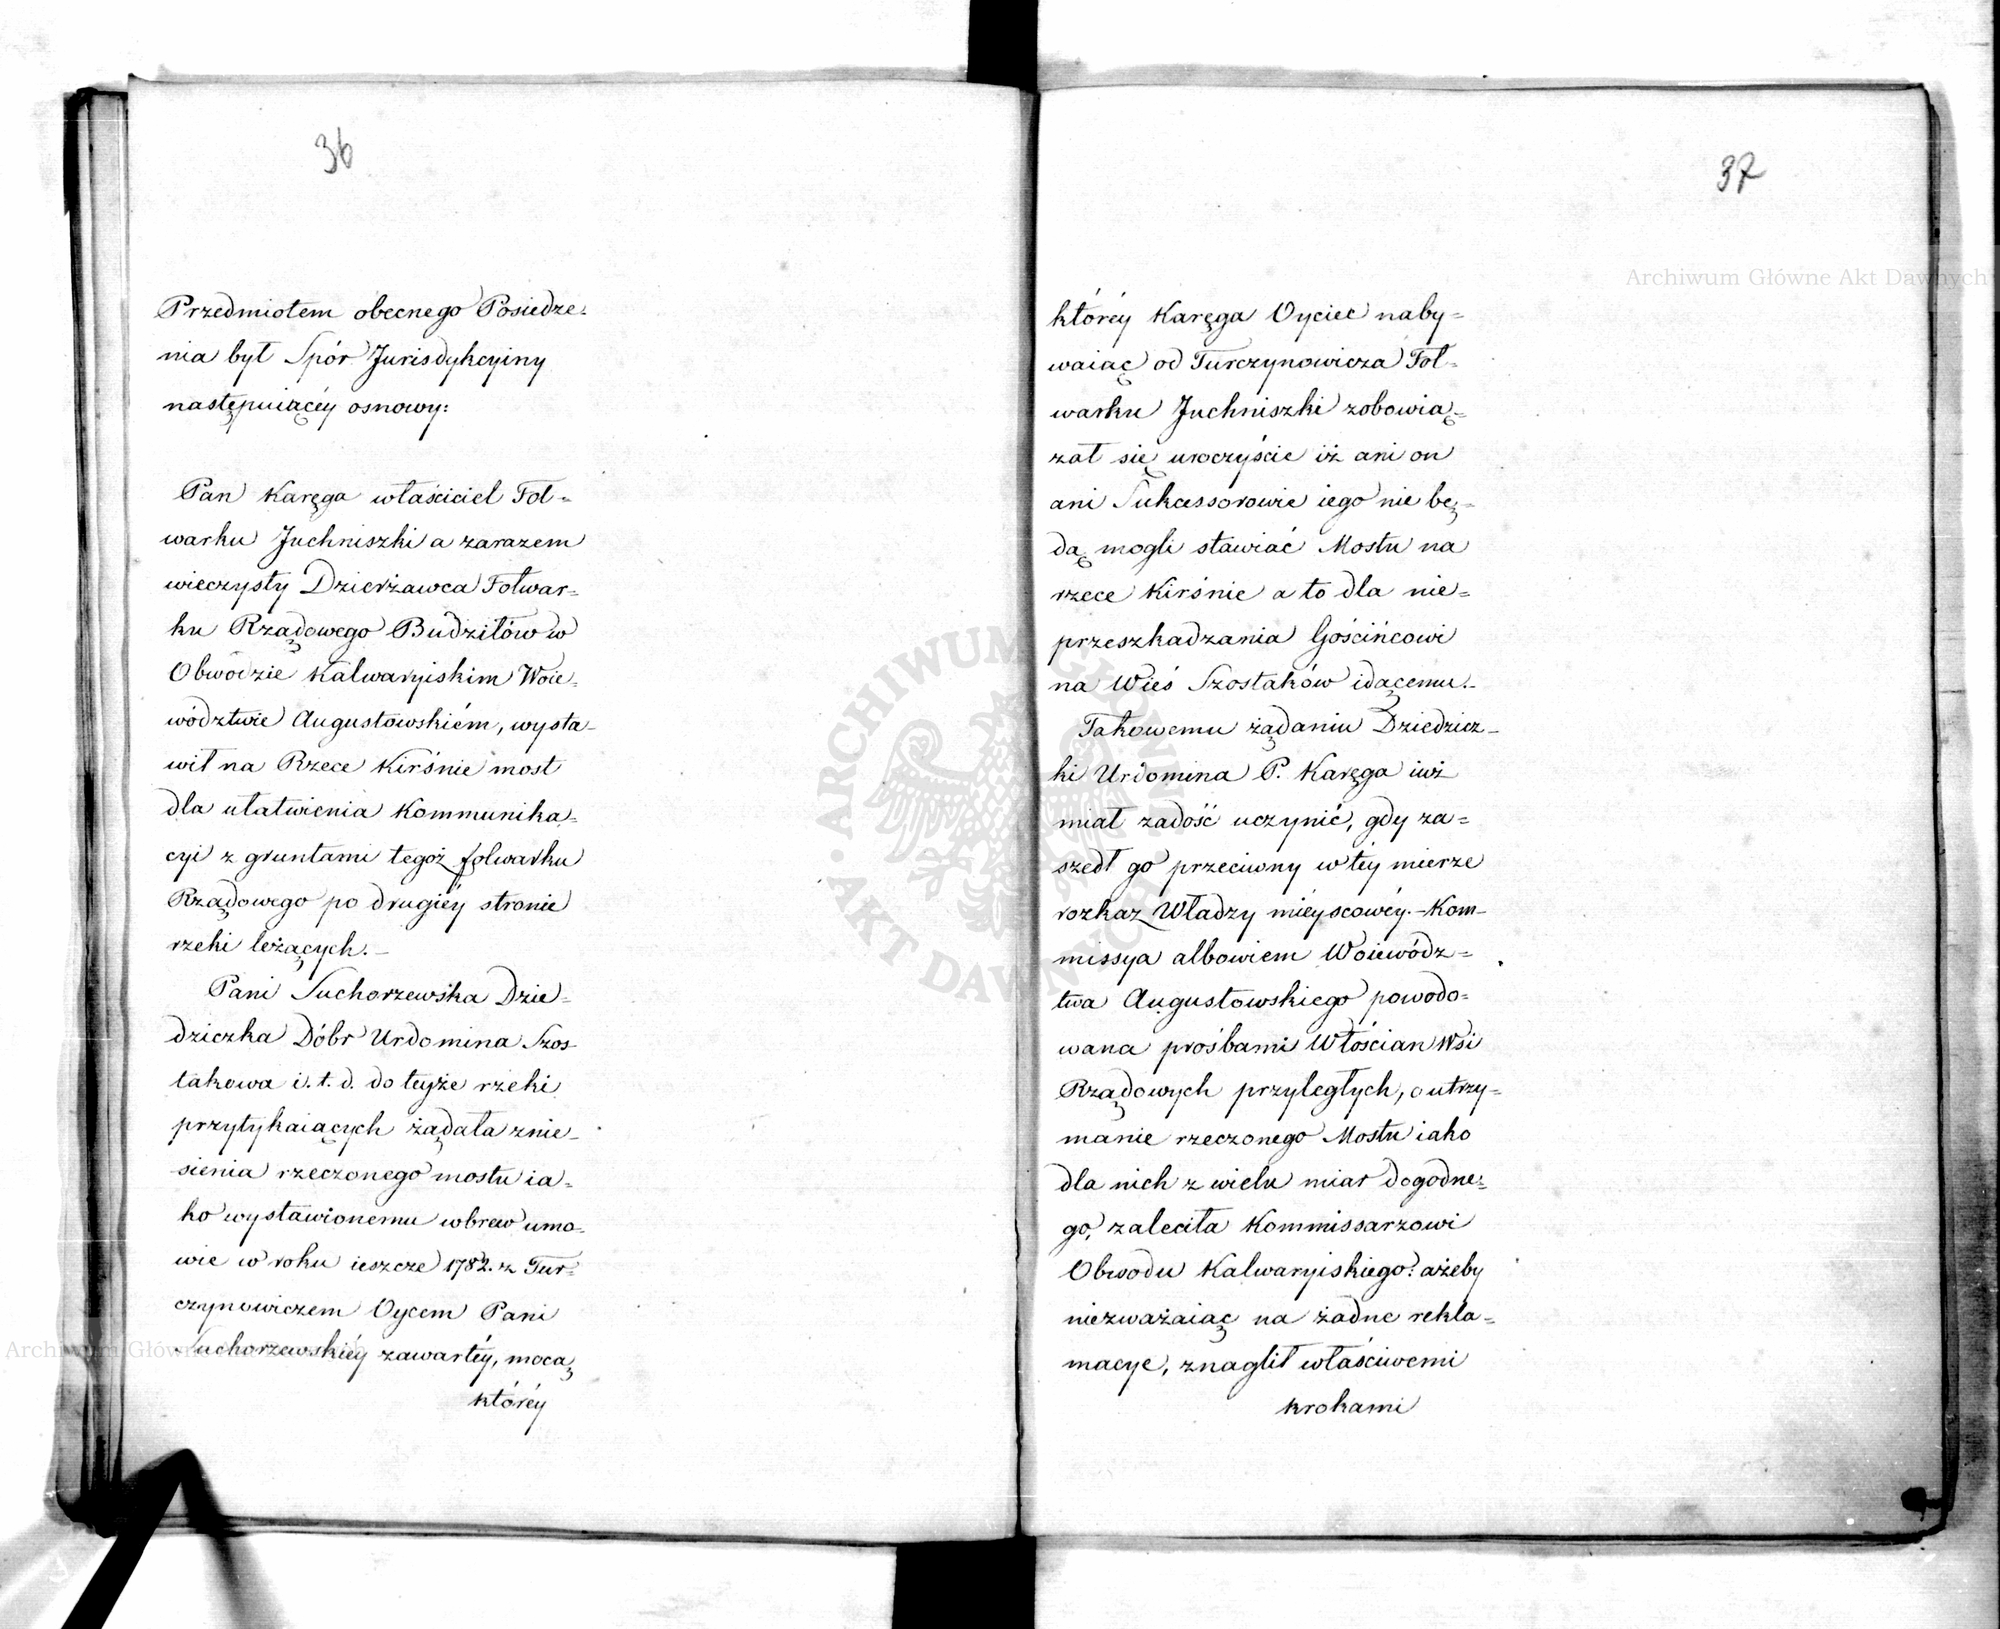 36
Przedmiotem obecnego Posiedze=
nia był Spór Jurisdykcyiny
następuiącéy osnowy:
Pan Karęga właściciel Fol=
warku Juchniszki a zarazem
wieczysty Dzierżawca Folwar=
ku Rządowego Budziłów w
Obwodzie Kalwaryiskim Woie=
wództwie Augustowskiém, wysta=
wił na Rzece Kirśnie most
dla ułatwienia Kommunika=
cyi z gruntami tegoż folwarku
Rządowego po drugiéy stronie
rzeki leżących.-
Pani Suchorzewska Dzie=
dziczka Dóbr Urdomina Szos
takowa i. t. d. do teyże rzeki
przytykaiących żądała znie=
sienia rzeczonego mostu ia=
ko wystawionemu wbrew umo=
wie w roku ieszcze 1782. z Tur=
czynowiczem Oycem Pani
Suchorzewskiéy zawartéy, mocą
któréy
37
któréy Karęga Oyciec naby=
waiąc od Turczynowicza Fol=
warku Juchniszki zobowią=
zał się uroczyście iż ani on
ani Sukcessorowie iego nie bę=
dą mogli stawiać Mostu na
rzece Kirśnie a to dla nie=
przeszkadzania Gościńcowi
na Wieś Szostaków idącemu.-
Takowemu żądaniu Dziedzicz=
ki Urdomina P. Karęga iuż
miał zadość uczynić, gdy za=
szedł go przeciwny w téy mierze
rozkaz Władzy miéyscowéy.-Kom=
missya albowiem Woiewódz=
twa Augustowskiego powodo=
wana prośbami Włościan Wsi
Rządowych przyległych, o utrzy=
manie rzeczonego Mostu iako
dla nich z wielu miar dogodne=
go, zaleciła Kommissarzowi
Obwodu Kalwaryiskiego: ażeby
niezważaiąc na żadne rekla=
macye, znaglił właściwemi
krokami
Archiwum Główne Akt Dawnych
Archiwum Główne Akt Dawnych
ARCHIWUM GŁÓWNE
AKT DAWNYCH